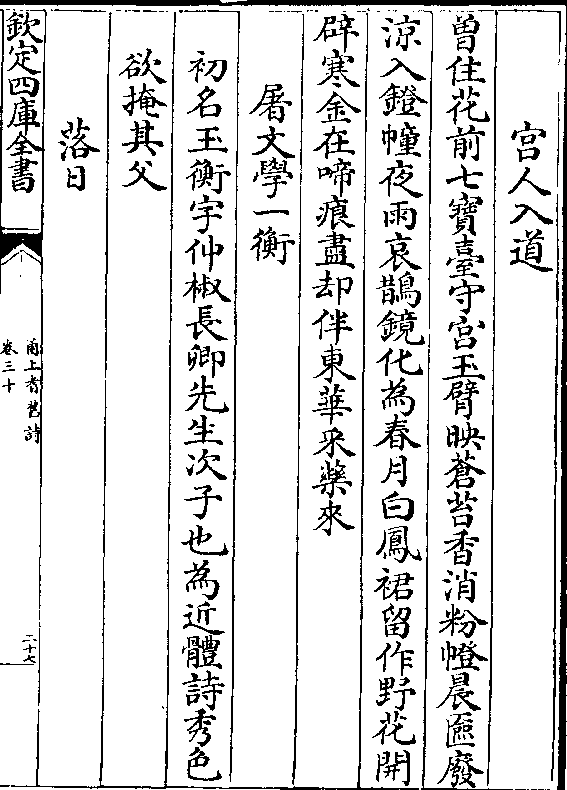 宫人入道
曾住花前七寶臺守宫玉臂映蒼苔香消粉㡧晨匳廢
涼入鐙幢夜雨哀鵲鏡化為春月白鳳裙留作野花開
辟寒金在啼痕盡却伴東華采藥來
屠文學一衡
初名玉衡字仲椒長卿先生次子也為近體詩秀色
欲掩其父
落日
欽定四庫全書
甬上耆舊詩
卷三十
二十七